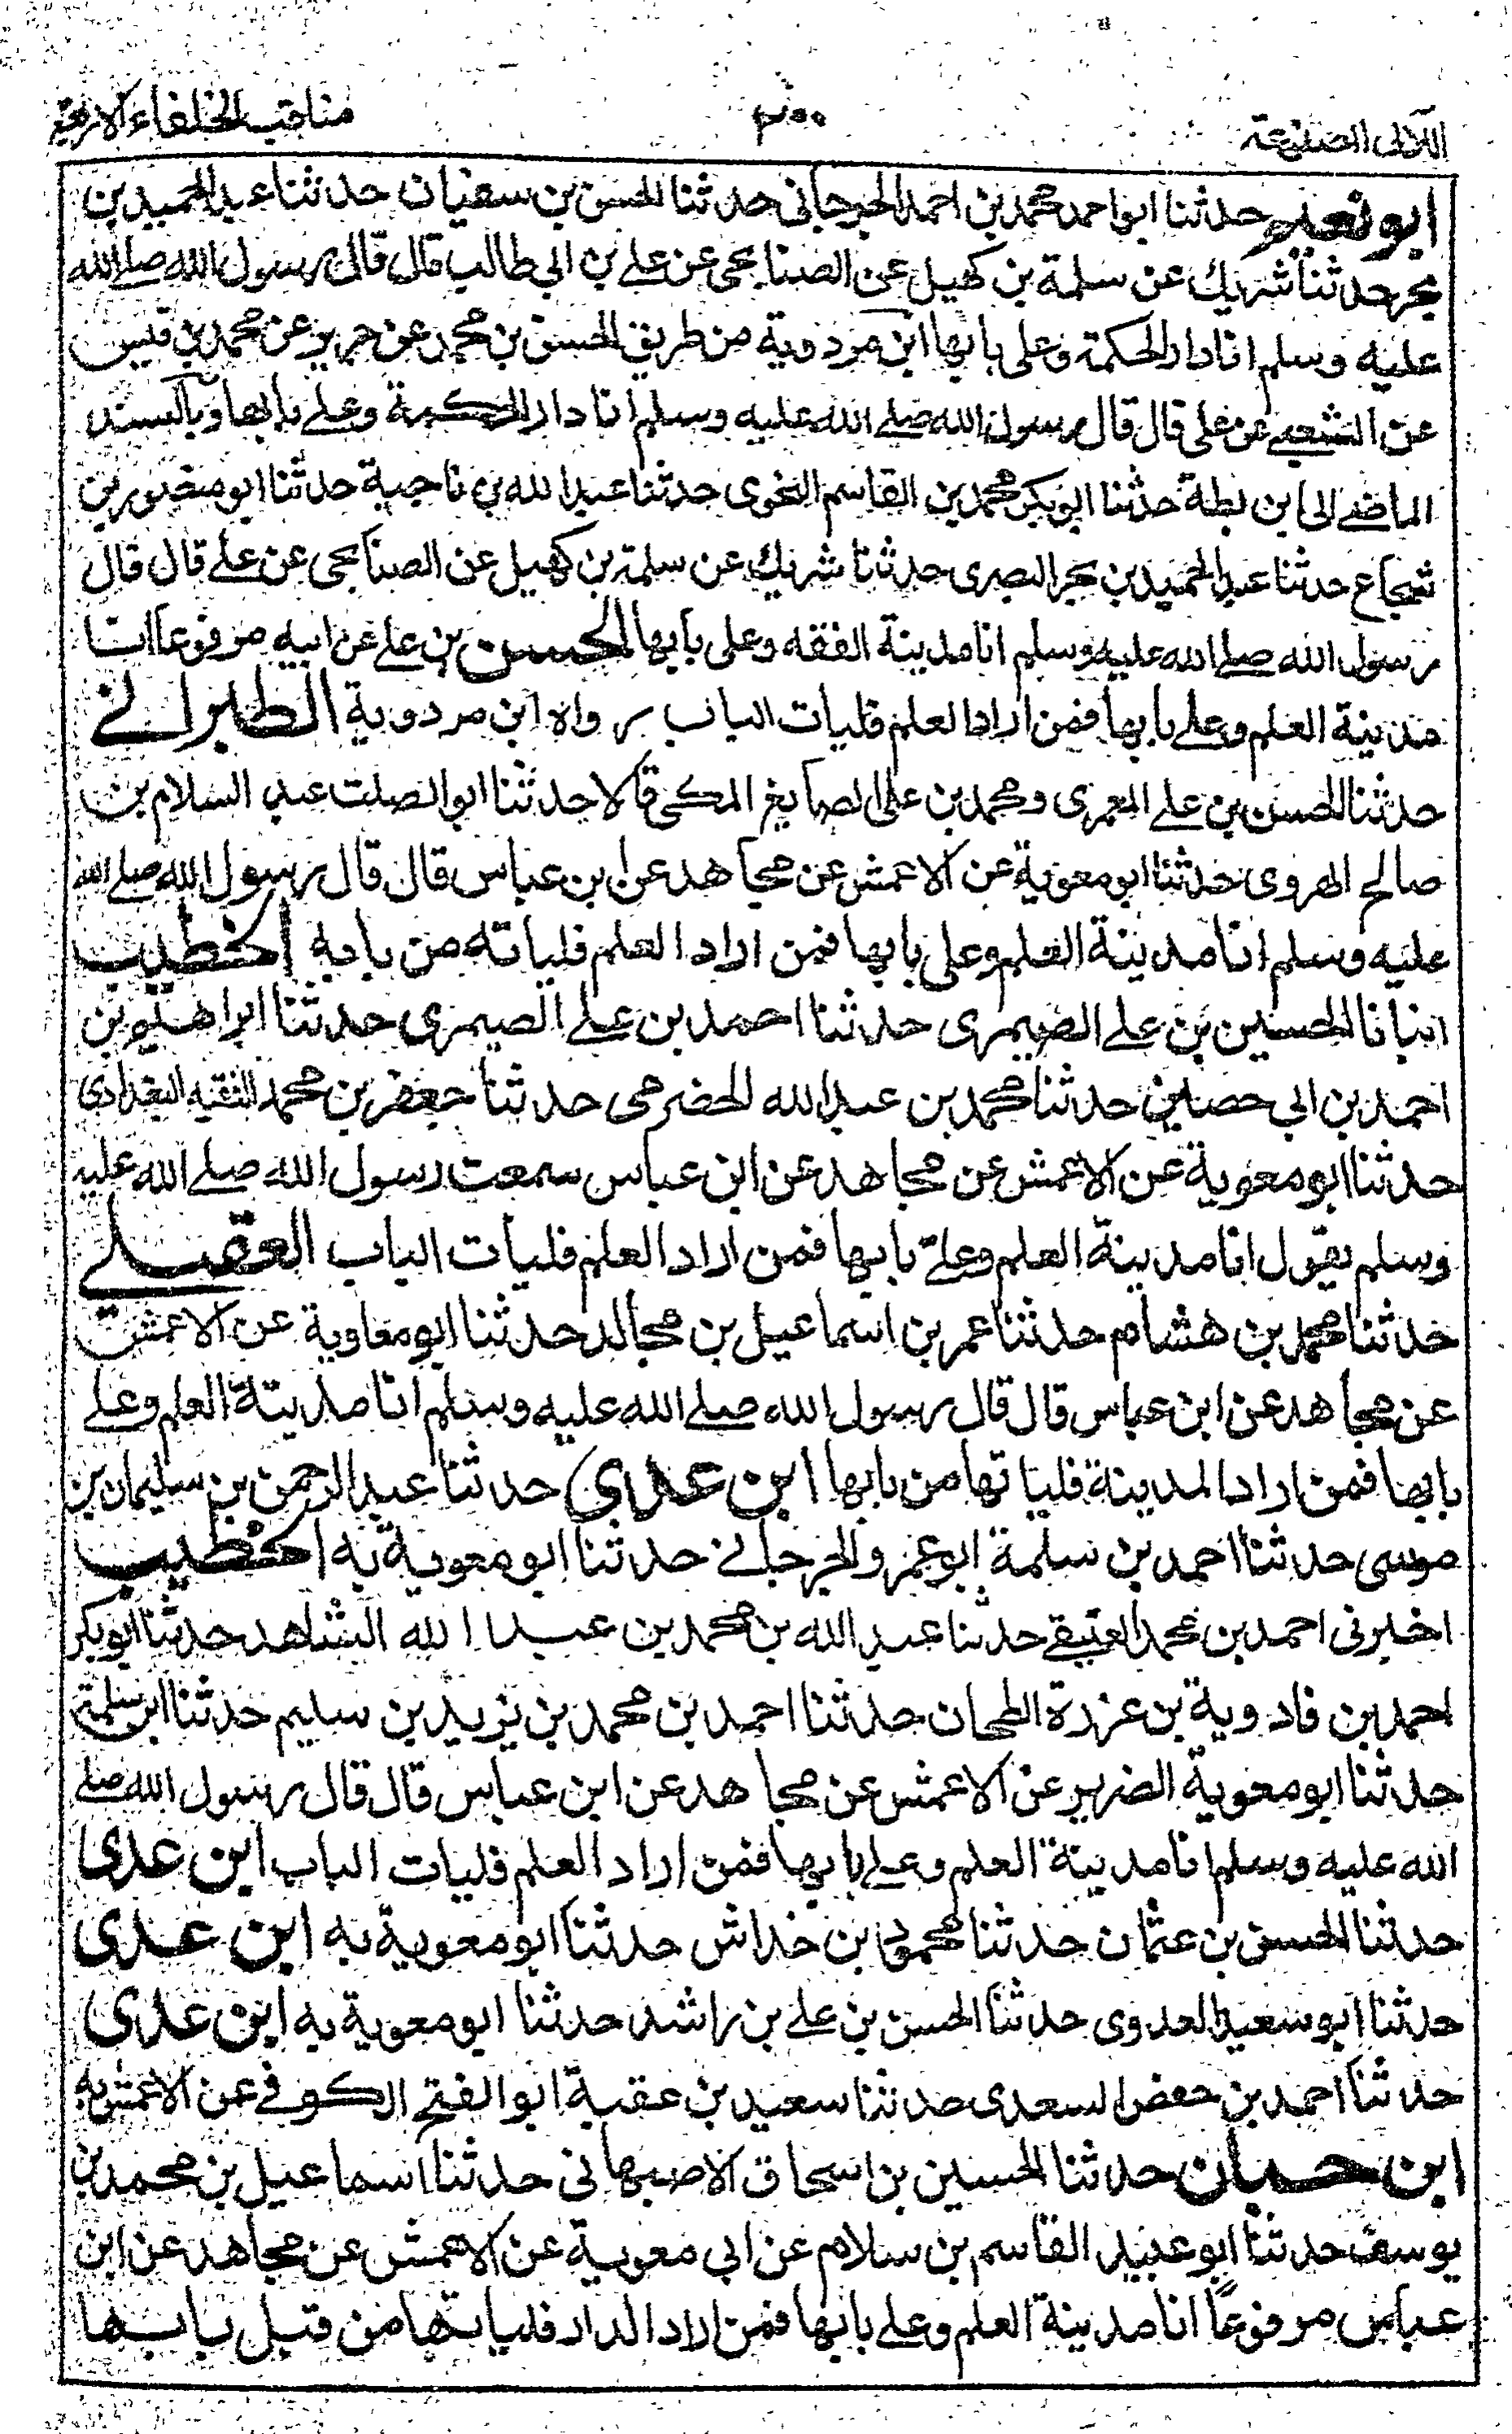 اللآلى المصنوعة
مناقب الخلفاء الاربعة
ابو نعيم حدثنا ابو احمد محمد بن احمد الجرجانى حدثنا الحسن بن سفيان حدثنا عبد الحميد بن
بحر حدثنا شريك عن سلمة بن كهيل عن الصنابحى عن على بن ابى طالب قال قال رسول الله صلى الله
عليه وسلم انا دار الحكمة وعلى بابها ابن مردوية من طريق الحسن بن محمد عن جرير عن محمد بن قيس
عن الشعبى عن على قال قال رسول الله صلى الله عليه وسلم انا دار الحكمة وعلى بابها وبالسند
الماضى الى ابن بطة حدثنا ابو بكر محمد بن القاسم النحوى حدثنا عبد الله بن ناجية حدثنا ابو منصور بن
شجاع حدثنا عبد الحميد بن بحر البصرى حدثنا شريك عن سلمة بن كهيل عن الصنابحى عن على قال قال
رسول الله صلى الله عليه وسلم انا مدينة الفقه وعلى بابها الحسن بن على عن ابيه مرفوعا انا
مدينة العلم وعلى بابها فمن اراد العلم فليات الباب رواه ابن مردوية الطبرانى
حدثنا الحسن بن على المعمرى ومحمد بن على الصايغ المكى قالا حدثنا ابو الصلت عبد السلام بن
صالح الهروى حدثنا ابو معوية عن الاعمش عن مجاهد عن ابن عباس قال قال رسول الله صلى الله
عليه وسلم انا مدينة العلم وعلى بابها فمن اراد العلم فلياته من بابه الخطيب
انبانا الحسين بن على الصيمرى حدثنا احمد بن على الصيمرى حدثنا ابراهيم بن
احمد بن ابى حصين حدثنا محمد بن عبد الله الحضرمى حدثنا جعفر بن محمد الفقيه البغدادى
حدثنا ابو معوية عن الاعمش عن مجاهد عن ابن عباس سمعت رسول الله صلى الله عليه
وسلم يقول انا مدينة العلم وعلىّ بابها فمن اراد العلم فليات الباب العقيلى
حدثنا محمد بن هشام حدثنا عمر بن اسماعيل بن مجالد حدثنا ابو معاوية عن الاعمش
عن مجاهد عن ابن عباس قال قال رسول الله صلى الله عليه وسلم انا مدينة العلم وعلى
بابها فمن اراد المدينة فلياتها من بابها ابن عدى حدثنا عبد الرحمن بن سليمان بن
موسى حدثنا احمد بن سلمة ابو عمرو الجرجانى حدثنا ابو معوية به الخطيب
اخبرنى احمد بن محمد العتيقى حدثنا عبد الله بن محمد بن عبد الله الشاهد حدثنا ابو بكر
احمد بن فاذوية بن عزرة الطحان حدثنا احمد بن محمد بن يزيد بن سليم حدثنا ابن سلمة
حدثنا ابو معوية الضرير عن الاعمش عن مجاهد عن ابن عباس قال قال رسول الله صلى
الله عليه وسلم انا مدينة العلم وعلى بابها فمن اراد العلم فليات الباب ابن عدى
حدثنا الحسن بن عثمان حدثنا محمود بن خداش حدثنا ابو معوية به ابن عدى
حدثنا ابو سعيد العدوى حدثنا الحسن بن على بن راشد حدثنا ابو معوية به ابن عدى
حدثنا احمد بن حفص السعدى حدثنا سعيد بن عقبة ابو الفتح الكوفى عن الاعمش به
ابن حبان حدثنا الحسين بن اسحاق الاصبهانى حدثنا اسماعيل بن محمد بن
يوسف حدثنا ابو عبيد القاسم بن سلام عن ابى معوية عن الاعمش عن مجاهد عن ابن
عباس مرفوعًا انا مدينة العلم وعلى بابها فمن اراد الدار فلياتها من قبل بابها